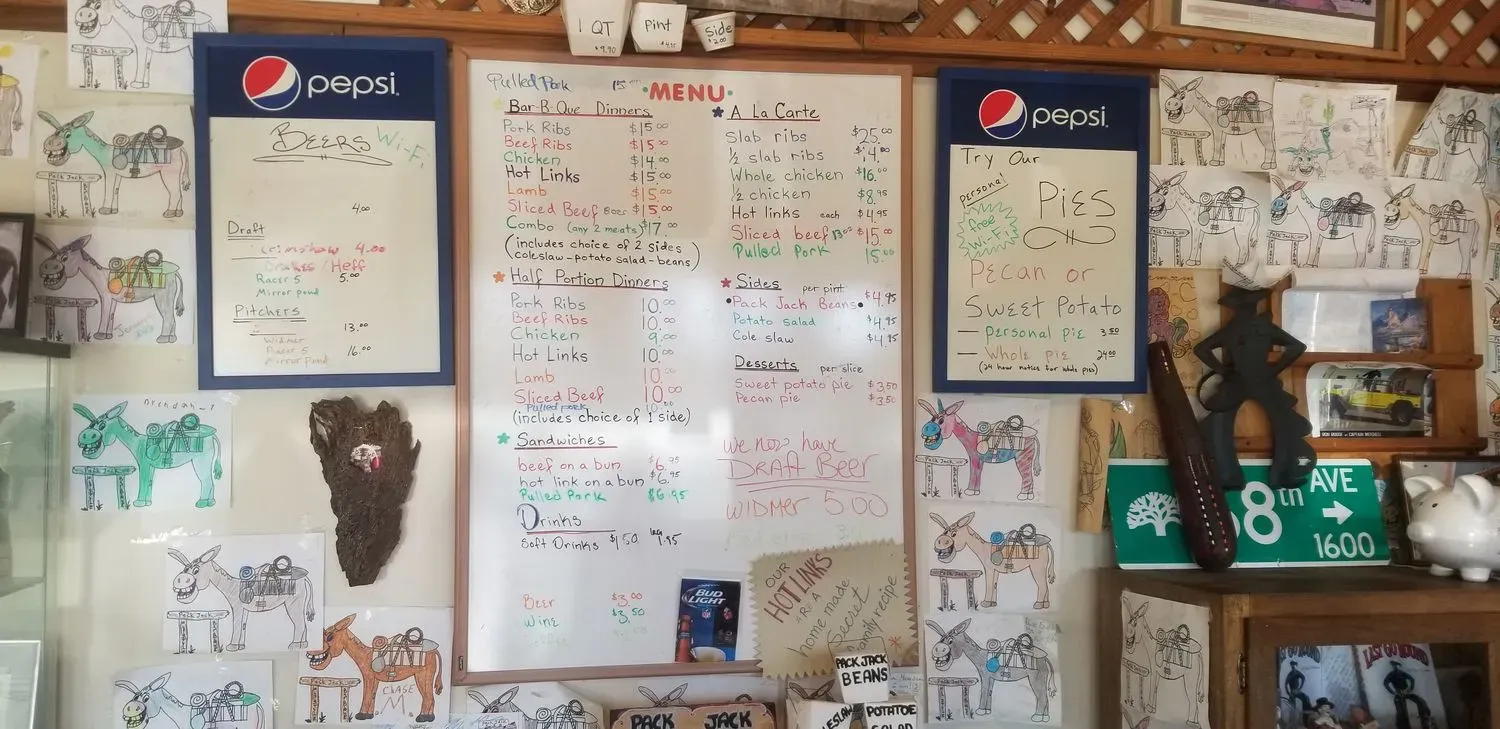 1 QT
$9.90
Pint
$4.95
Side
$2.00
pepsi
BEERS
Wi-Fi
4.00
Draft
4.00
Racer 5 5.00
Mirror pond
Pitchers
13.00
Widmer
Racer 5 16.00
Mirror Pond
Pulled Pork 15.00
MENU
Bar-B-Que Dinners
Pork Ribs $15.00
Beef Ribs $15.00
Chicken $14.00
Hot Links $15.00
Lamb $15.00
Sliced Beef $15.00
Combo (any 2 meats) $17.00
(includes choice of 2 sides
coleslaw-potato salad-beans)
Half Portion Dinners
Pork Ribs 10.00
Beef Ribs 10.00
Chicken 9.00
Hot Links 10.00
Lamb 10.00
Sliced Beef 10.00
Pulled pork 10.00
(includes choice of 1 side)
Sandwiches
beef on a bun $6.95
hot link on a bun $6.95
Pulled Pork $6.95
Drinks
Soft Drinks $1.50 large 1.95
Beer $3.00
Wine $3.50
A La Carte
Slab ribs $25.00
½ slab ribs $14.00
Whole chicken $16.00
½ chicken $8.95
Hot links each $4.95
Sliced beef $15.00
Pulled Pork 15.00
Sides per pint
Pack Jack Beans $4.95
Potato salad $4.95
Cole slaw $4.95
Desserts per slice
Sweet potato pie $3.50
Pecan pie $3.50
we now have
DRAFT Beer
WIDMER 5.00
BUD
LIGHT
OUR
HOT LINKS
ARE A
home made
Secret
family recipe
PACK JACK
BEANS
POTATOE
PACK JACK
pepsi
Try Our
personal
PIES
free
Wi-Fi
Pecan or
Sweet Potato
— Personal pie 3.50
— Whole pie 24.00
(24 hour notice for whole pies)
Pack Jack
Pack Jack
Pack Jack
Pack Jack
Pack Jack
Pack Jack
CHASE
M.
8th AVE
1600